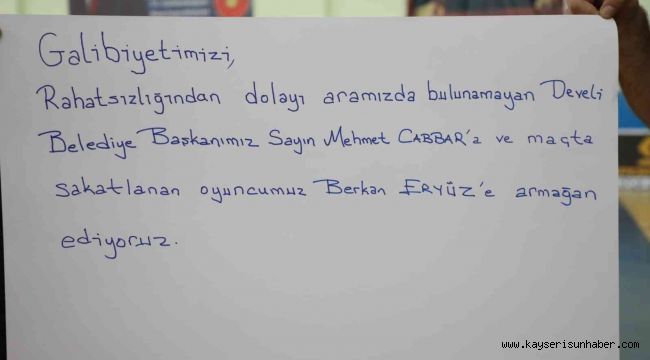 Galibiyetimizi,
Rahatsızlığından dolayı aramızda bulunamayan Develi
Belediye Başkanımız Sayın Mehmet CABBAR'a ve maçta
sakatlanan oyuncumuz Berkan ERYÜZ'e armağan
ediyoruz.
www.kayserisunhaber.com